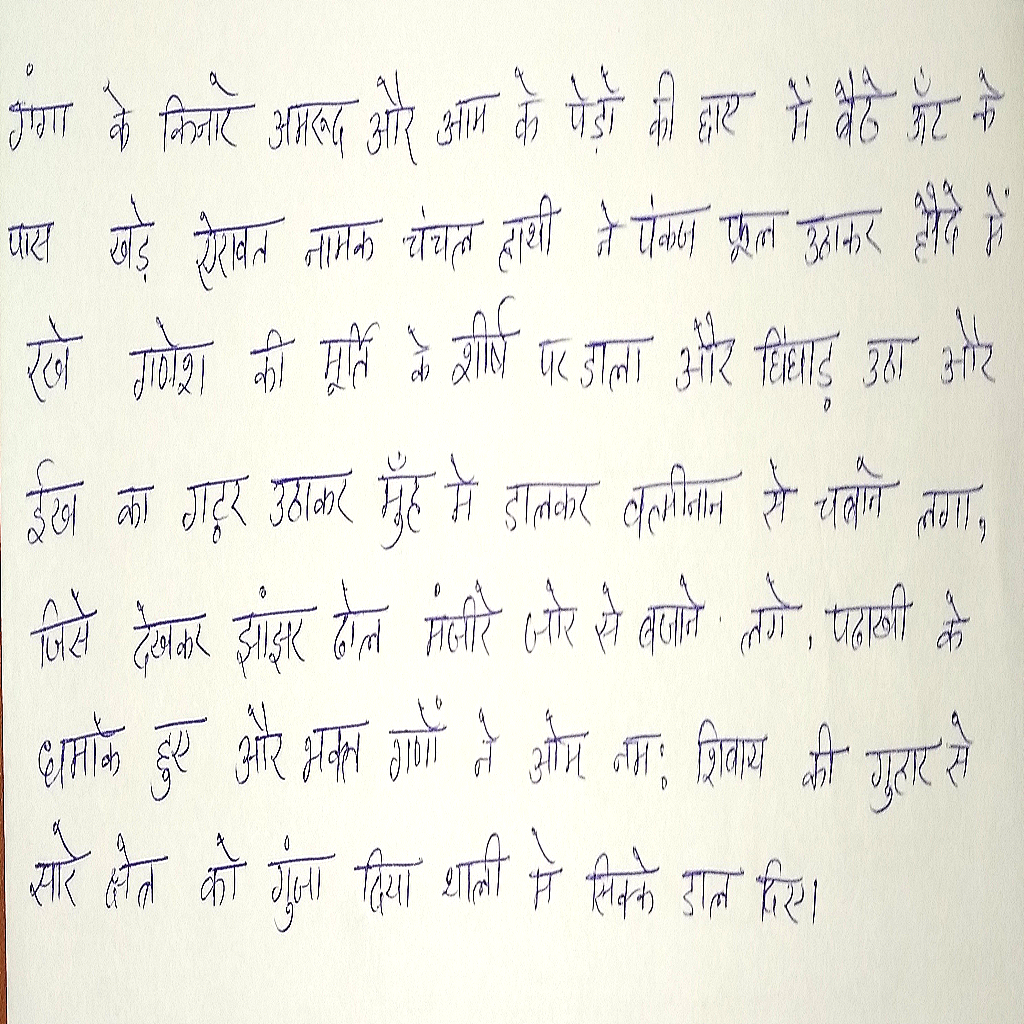 गंगा के किनारे अमरूद और आम के पेड़ों की छाए में बैठे ऊँट के
पास खड़े ऐरावत नामक चंचल हाथी ने पंकज फूल उठाकर हौदे में
रखे गणेश की मूर्ति के शीर्ष पर डाला और चिंघाड़ उठा और
ईख का गट्ठर उठाकर मुँह में डालकर तल्लीनता से चबाने लगा,
जिसे देखकर झांझर ढोल मंजीरे जोर से बजाने लगे, पटाखों के
धमाके हुए और भक्त गणों ने ओम नमः शिवाय की गुहार से
सारे क्षेत्र को गुंजा दिया थाली में सिक्के डाल दिए।